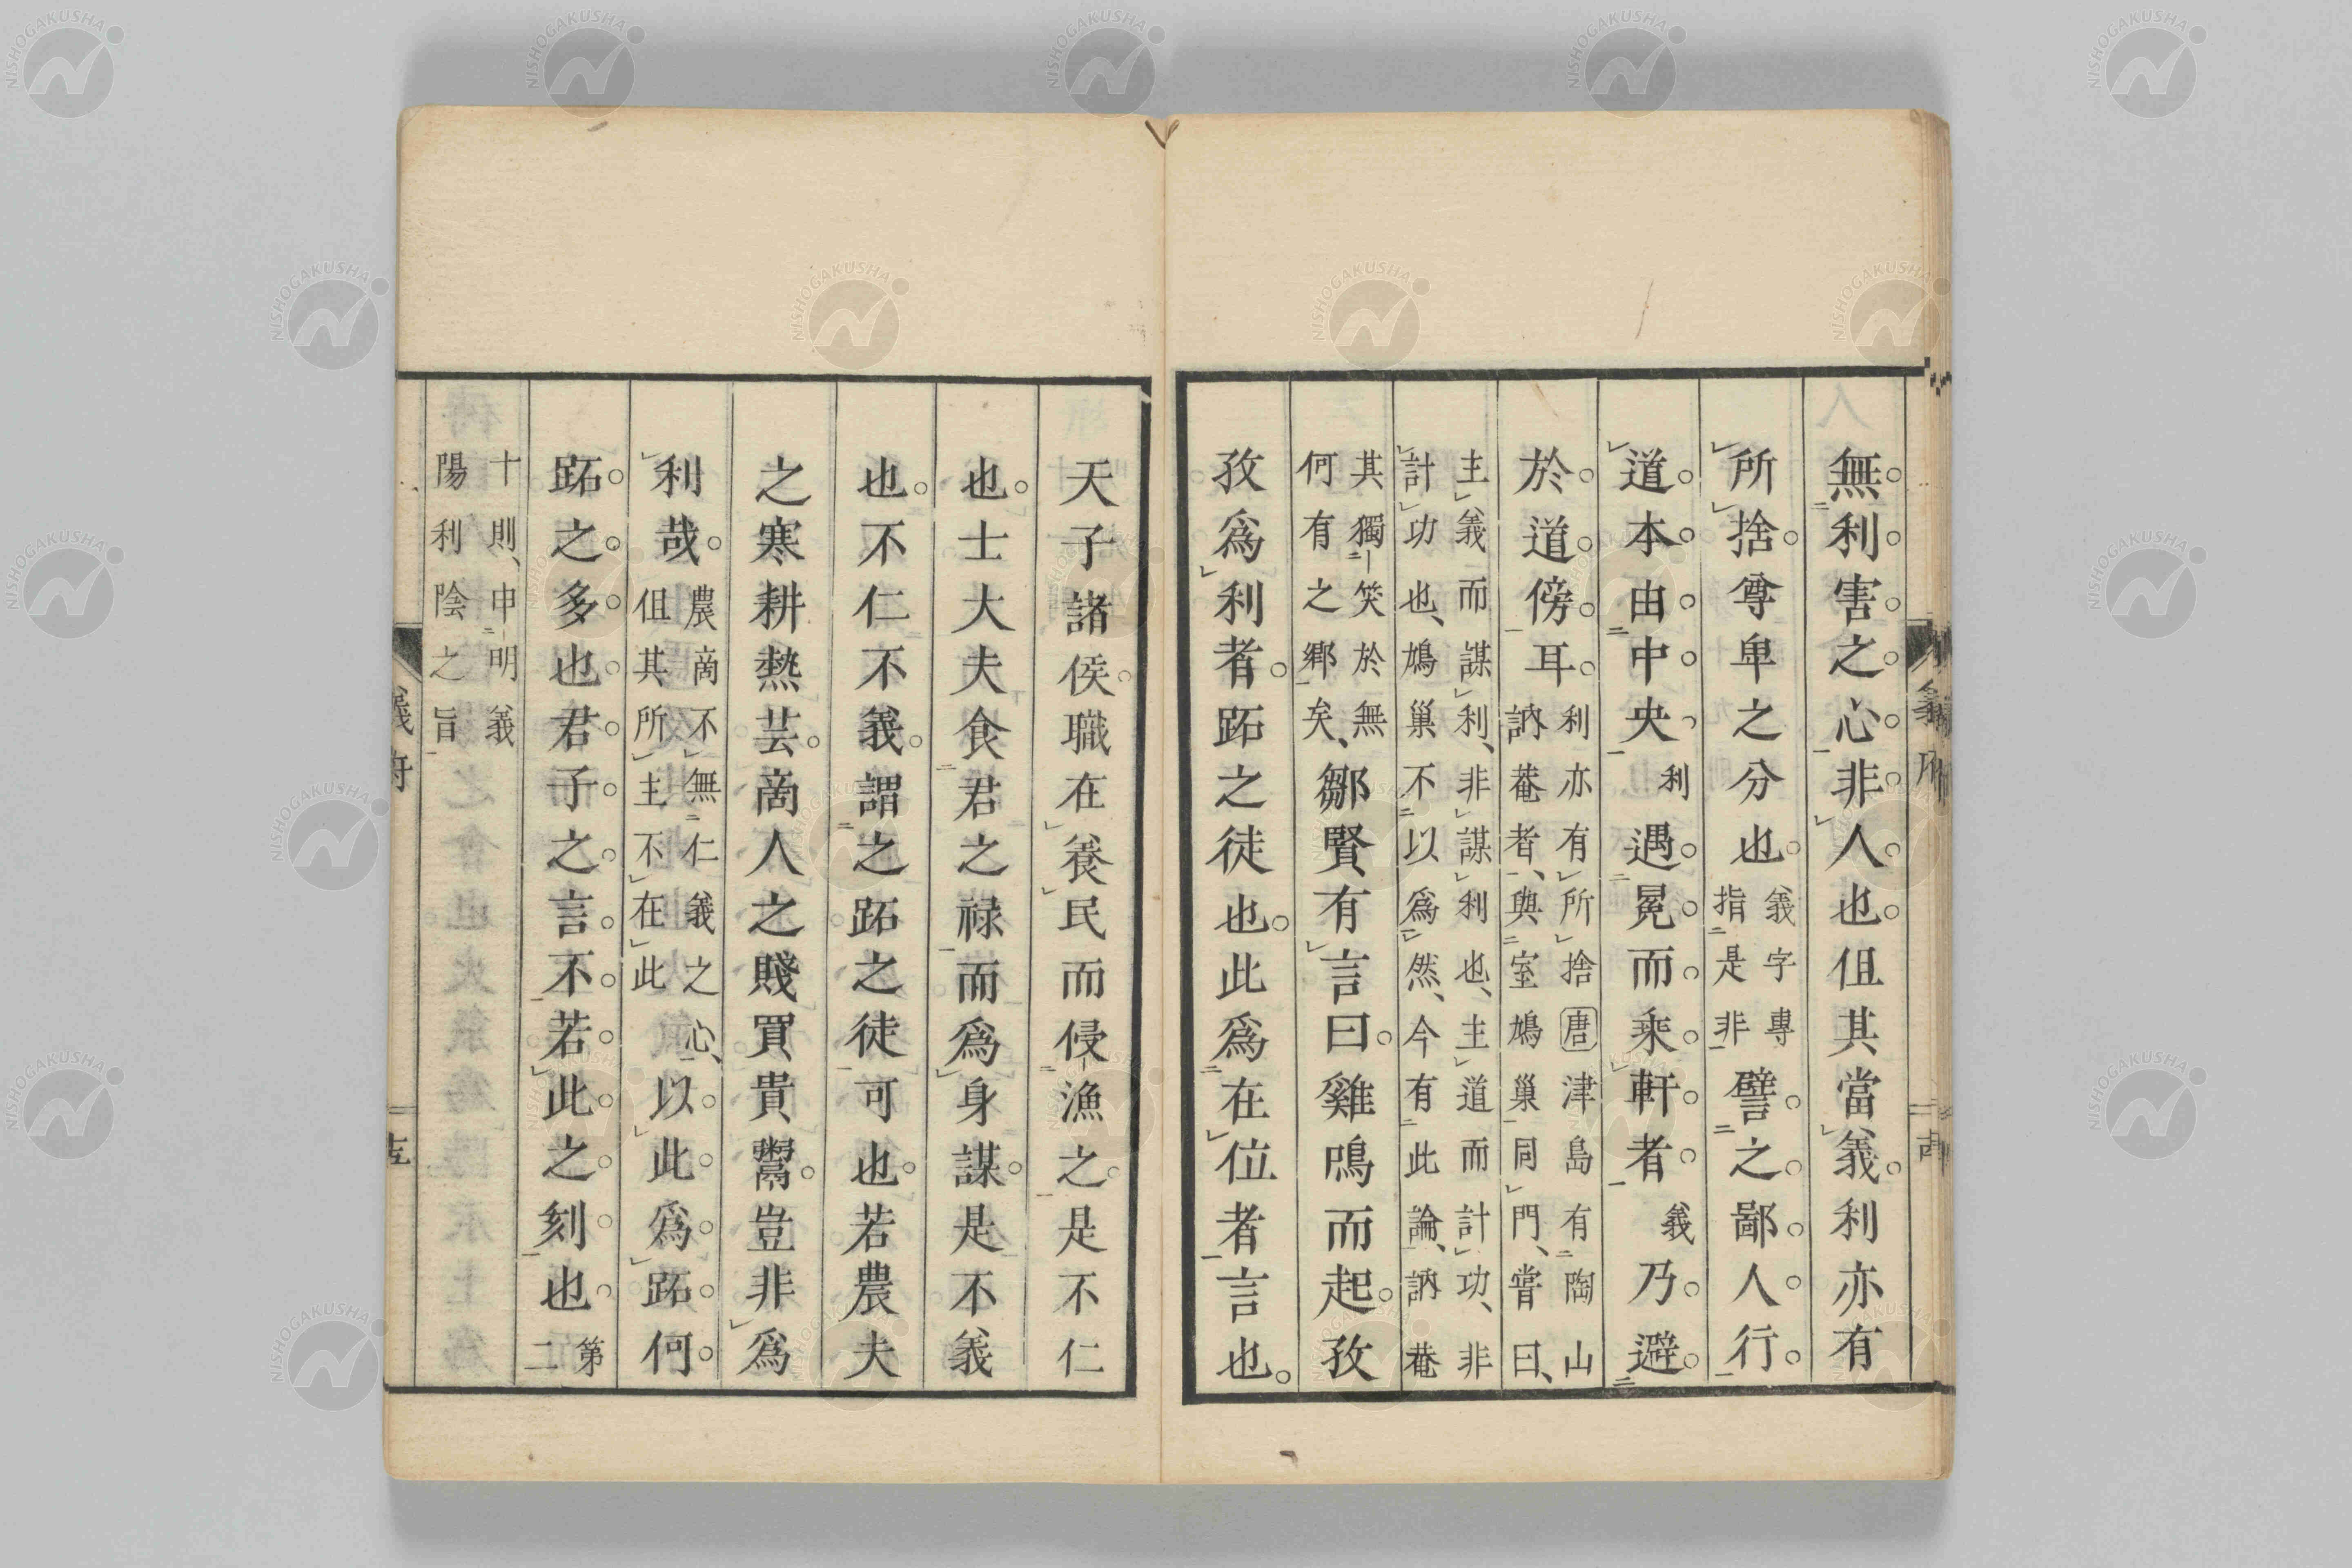 無利害之心非人也但其當義利亦有
所捨尊卑之分也
義字專
指是非
譬之鄙人行
道本由中央利遇冕而乗軒者義乃避
於道傍耳
利亦有所捨唐津島有陶山
訥菴者、與室鳩巢同門、嘗曰、
主義而謀利、非謀利也、主道而計功、非
計功也、鳩巢不以爲然、今有此論、訥菴
其獨笑於無
何有之鄉矣、
鄒賢有言曰雞鳴而起孜
孜爲利者跖之徒也此爲在位者言也
天子諸侯職在養民而侵漁之是不仁
也士大夫食君之禄而爲身謀是不義
也不仁不義謂之跖之徒可也若農夫
之寒耕熱芸商人之賤買貴鬻豈非爲
利哉
農商不無仁義之心、
但其所主不在此
以此爲跖何
跖之多也君子之言不若此之刻也
第
二
十則、申明義
陽利陰之旨
義府
NISHOGAKUSHA